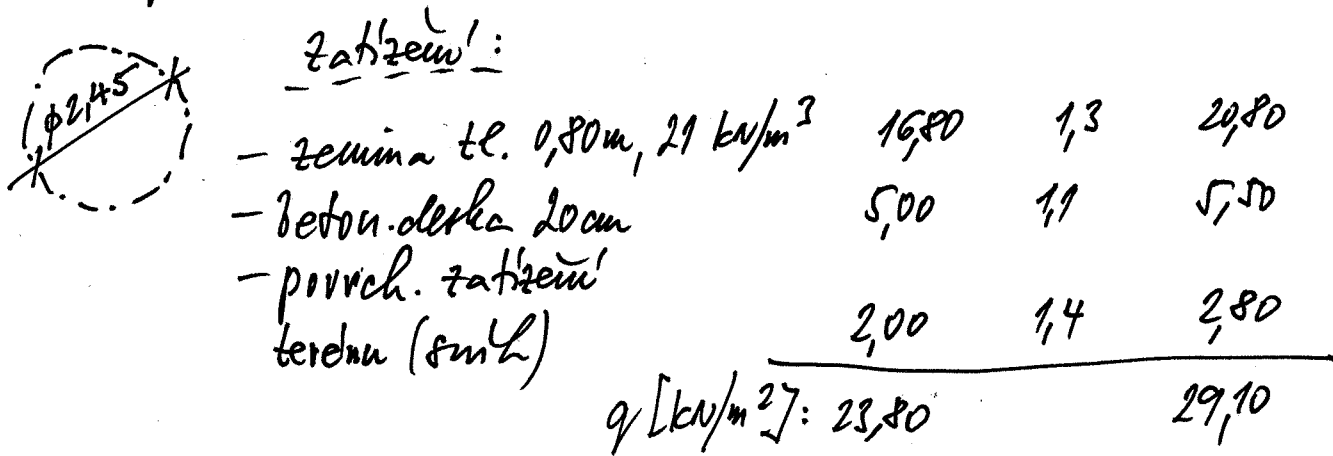 zatížení:
φ2,45
- zemina tl. 0,80m, 21 kN/m³ 16,80 1,3 20,80
- beton.deska 20cm 5,00 1,1 5,50
- povrch. zatížení
terénu (sníh) 2,00 1,4 2,80
q [kN/m²]: 23,80 29,10